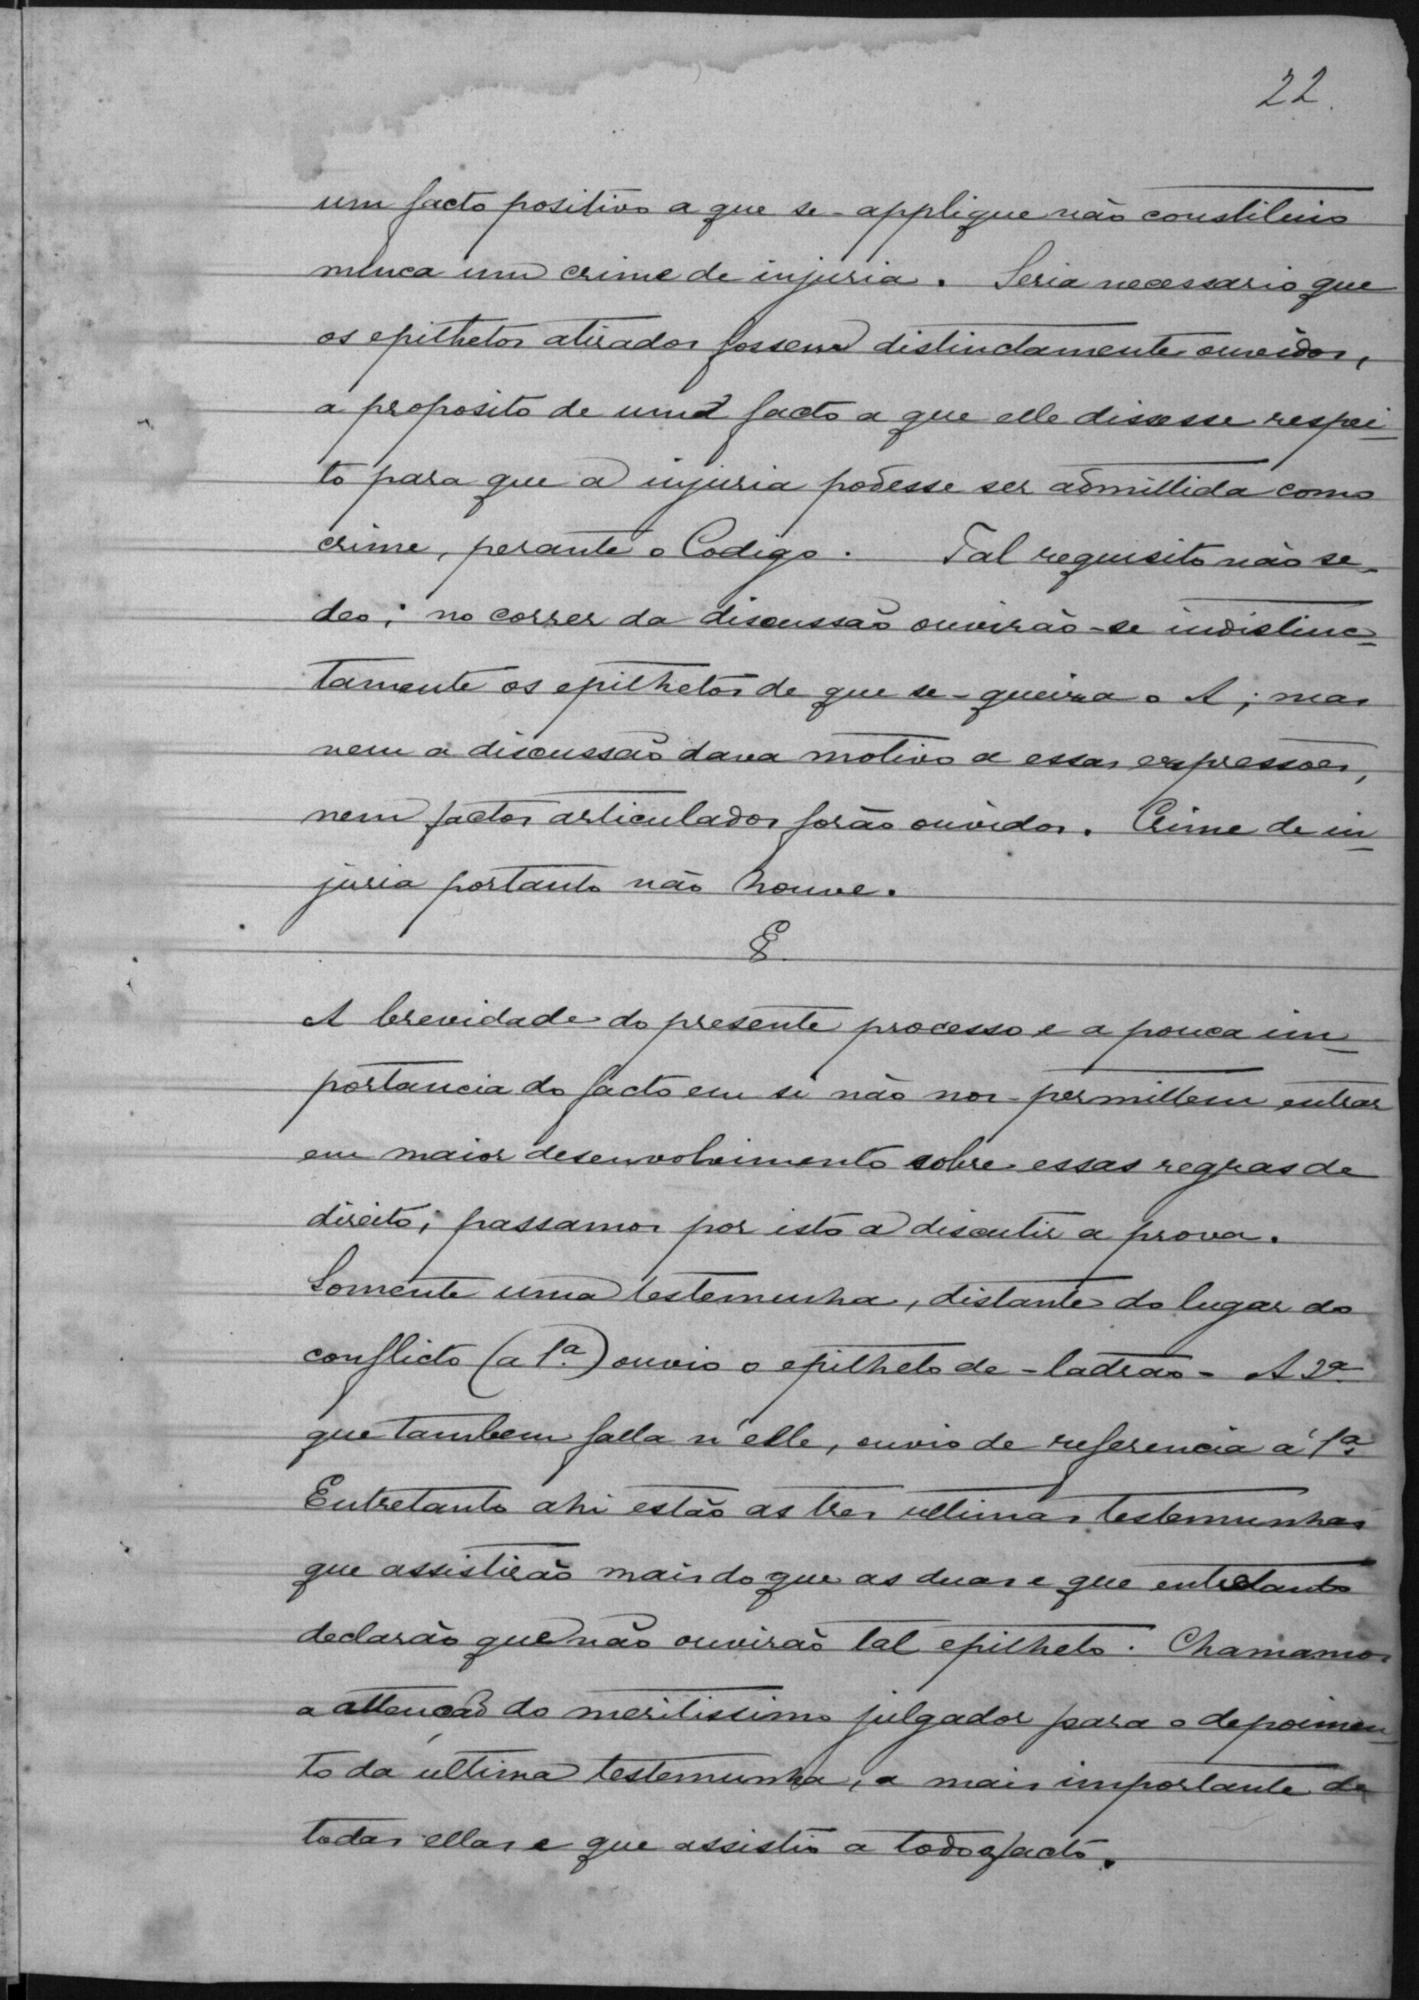 22.
um facto positivo a que se-applique não constituio
nunca um crime de injuria. Seria necessario que
os epithetos atirados fossem distinctamente ouvidos,
a proposito de um facto a que elle dissesse respei-
to para que a injuria podesse ser admittida como
crime, perante o Codigo. Tal requisito não se-
deo; no correr da discussão ouvirão-se indistinc-
tamente os epithetos de que se-queixa o A; mas
nem a discussão dava motivo a essas expressoes,
nem factos articulados forão ouvidos. Crime de in-
juria portanto não houve.
§.
A brevidade do presente processo e a pouca im-
portancia do facto em si não nos-permittem entrar
em maior desenvolvimento sobre essas regras de
direito; passamos por isto a discutir a prova.
Somente uma testemunha, distante do lugar do
conflicto (a 1ª.) ouvio o epitheto de -ladrão- A 2ª.
que tambem falla n'elle, ouvio de referencia á 1ª.
Entretanto ahi estão as tres ultimas testemunhas
que assistirão mais do que as duas e que entretanto
declarão que não ouvirão tal epitheto. Chamamos
a attenção do meritissimo julgador para o depoimen-
to da ultima testemunha, a mais importante de
todas ellas e que assistio a todo o facto.